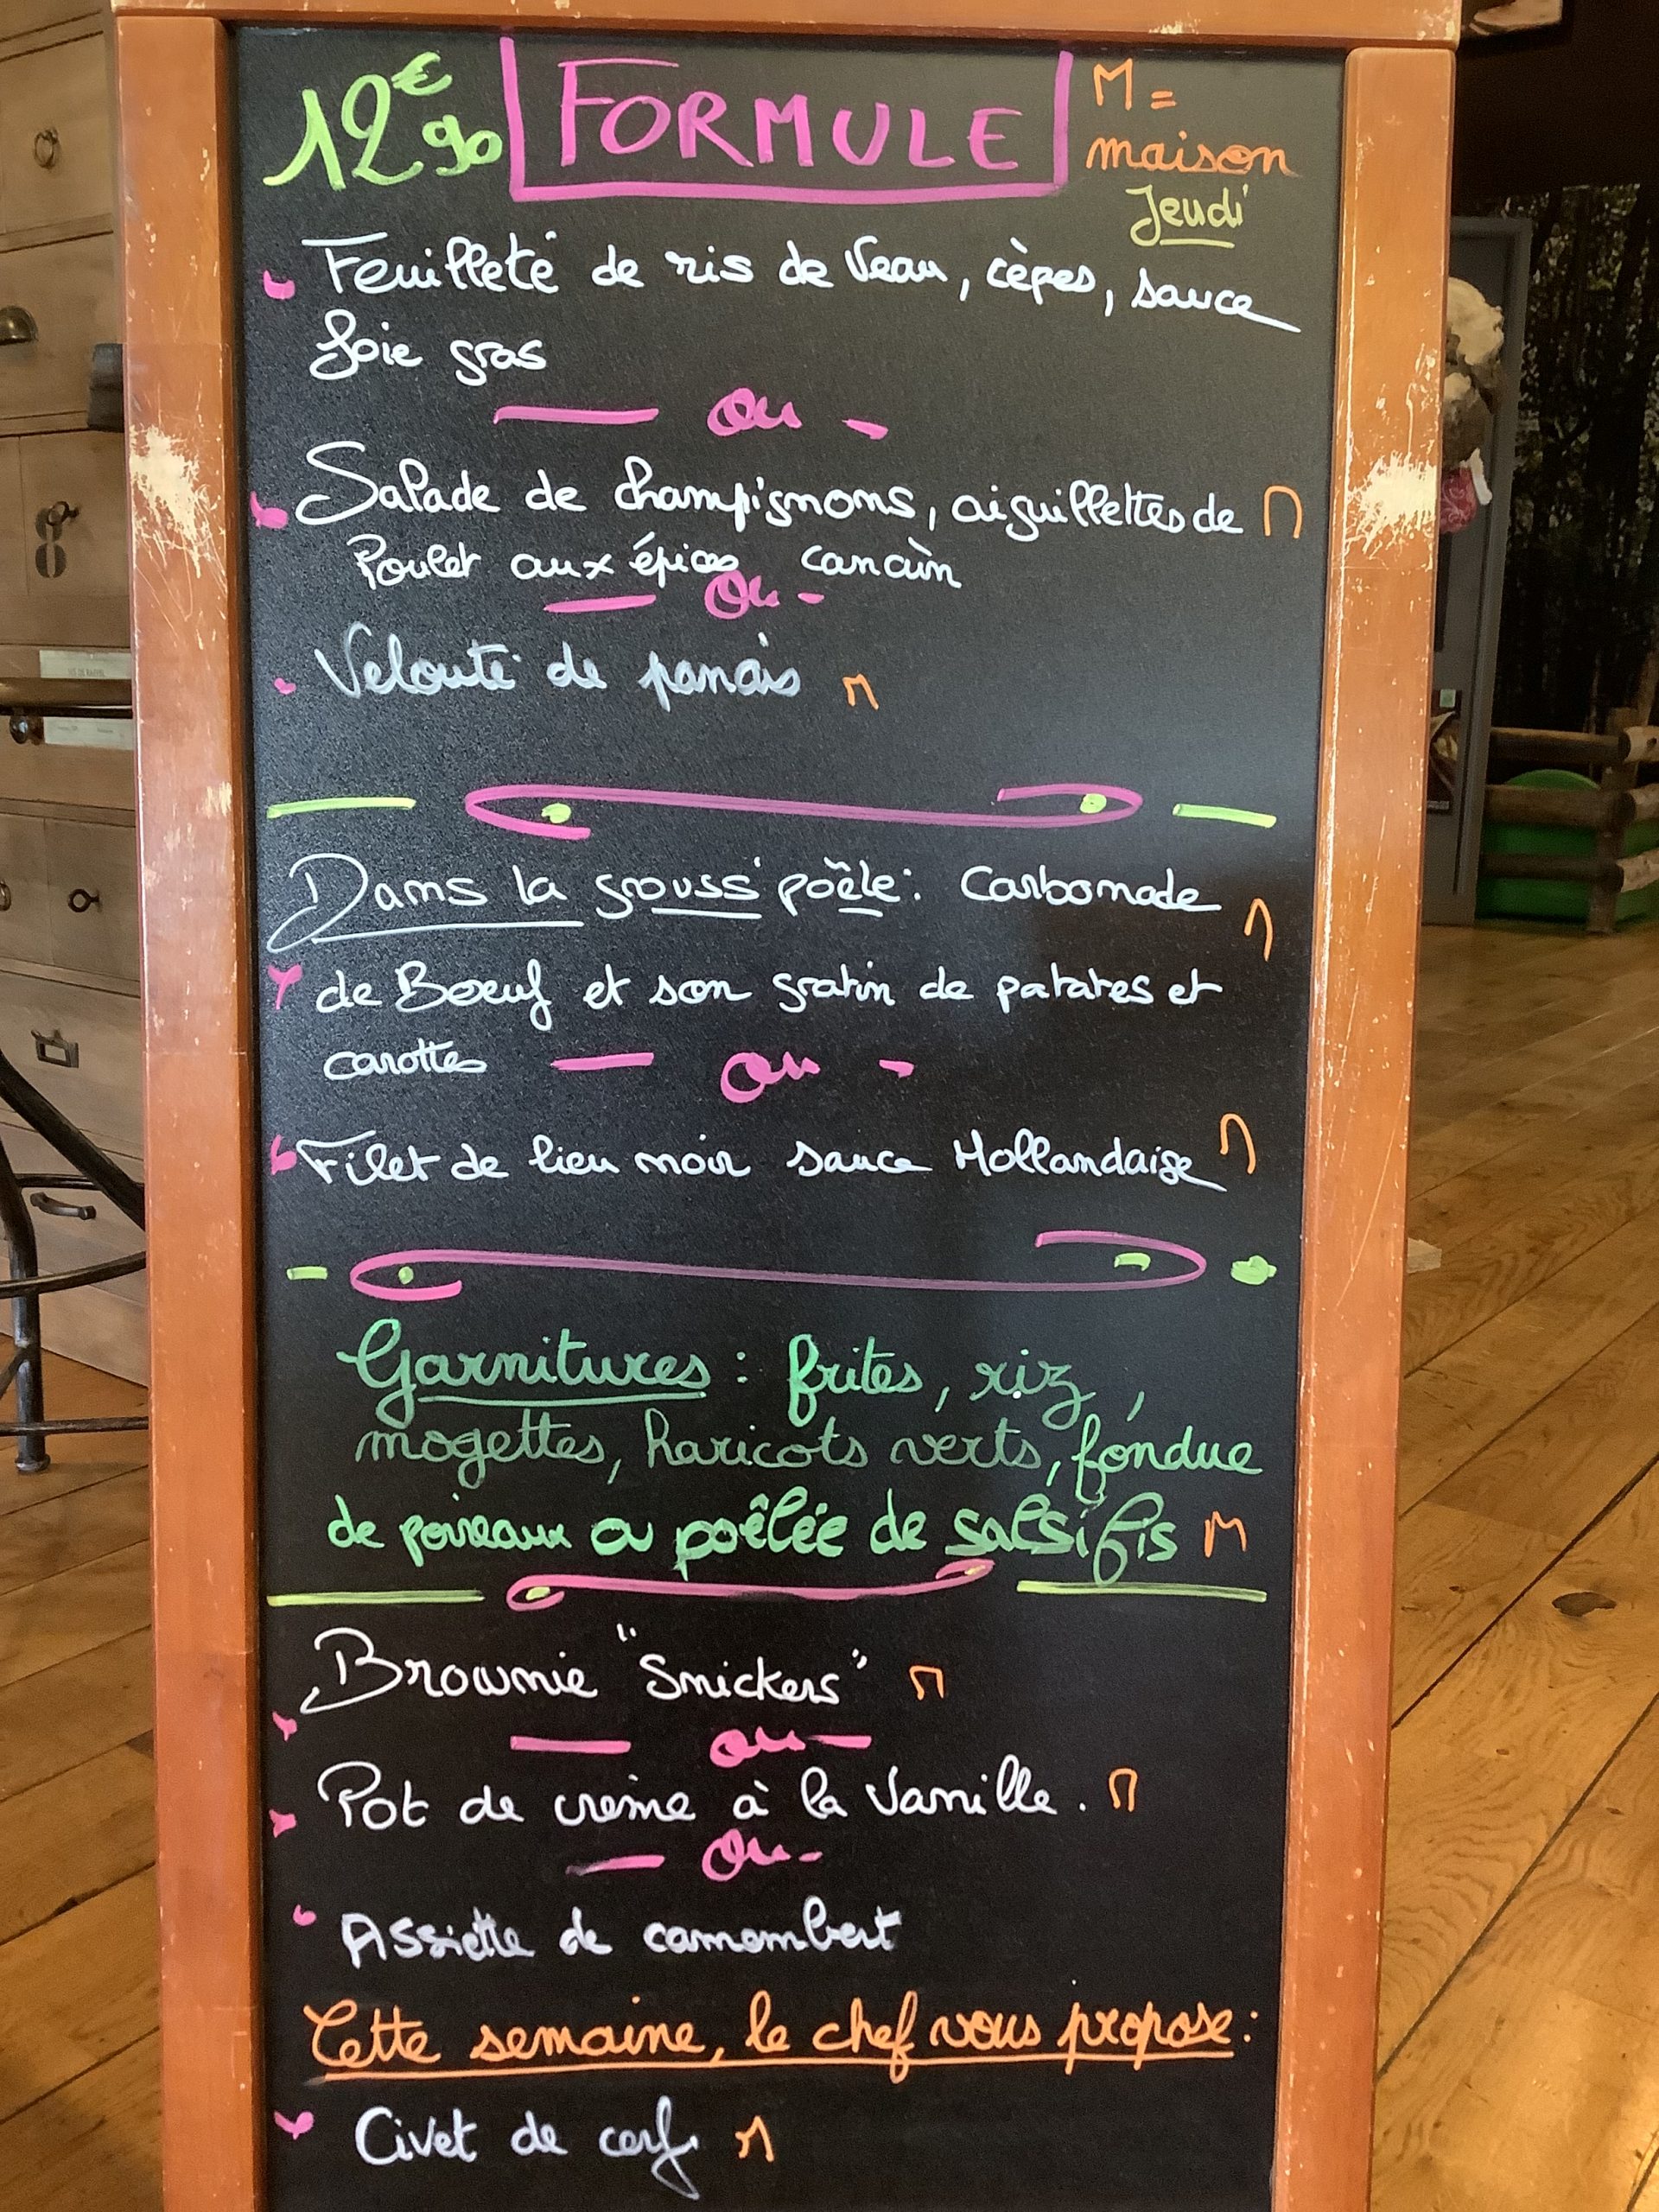 12€90 FORMULE M =
maison
Jeudi
Feuilleté de ris de Veau, cèpes, sauce
foie gras
— ou -
Salade de champignons, aiguillettes de M
Poulet aux épices canaün
— Ou -
Velouté de panais M
Dans la grouss' poêle: Carbonade M
de Boeuf et son gratin de patates et
carottes — ou -
Filet de lieu noir sauce Hollandaise M
Garnitures : frites, riz,
mogettes, haricots verts, fondue
de poireaux ou poêlée de salsifis M
Brownie "Snickers" M
— ou —
Pot de crème à la Vanille. M
— Ou -
Assiette de camembert
Cette semaine, le chef vous propose :
Civet de cerf M